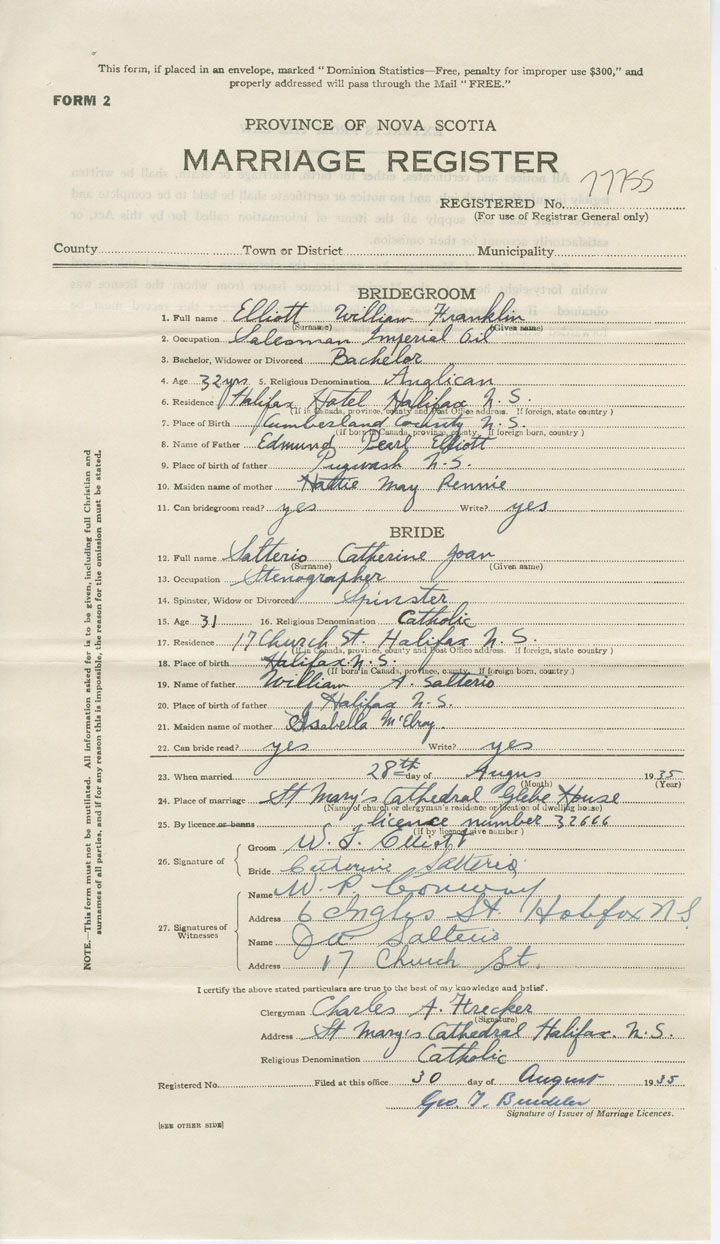 This form, if placed in an envelope, marked "Dominion Statistics—Free, penalty for improper use $300," and
properly addressed will pass through the Mail "FREE."
FORM 2
PROVINCE OF NOVA SCOTIA
MARRIAGE REGISTER
REGISTERED No. 7755
(For use of Registrar General only)
County Town or District Municipality
BRIDEGROOM
1. Full name Elliott William Franklin
(Surname) (Given name)
2. Occupation Salesman Imperial Oil
3. Bachelor, Widower or Divorced Bachelor
4. Age 32 yrs 5. Religious Denomination Anglican
6. Residence Halifax Hotel Halifax N.S.
(If in Canada, province, county and Post Office address. If foreign, state country)
7. Place of Birth Cumberland County N.S.
(If born in Canada, province, county. If foreign born, country)
8. Name of Father Edmund Pearl Elliott
9. Place of birth of father Pugwash N.S.
10. Maiden name of mother Hattie May Rennie
11. Can bridegroom read? yes Write? yes
BRIDE
12. Full name Salterio Catherine Joan
(Surname) (Given name)
13. Occupation Stenographer
14. Spinster, Widow or Divorced Spinster
15. Age 31 16. Religious Denomination Catholic
17. Residence 17 Church St. Halifax N.S.
(If in Canada, province, county and Post Office address. If foreign, state country)
18. Place of birth Halifax N.S.
(If born in Canada, province, county. If foreign born, country)
19. Name of father William A. Salterio
20. Place of birth of father Halifax N.S.
21. Maiden name of mother Isabella McElroy.
22. Can bride read? yes Write? yes
23. When married 28th day of Augus 1935
(Month) (Year)
24. Place of marriage St Mary's Cathedral Glebe House
(Name of church or clergyman's residence or location of dwelling house)
25. By licence or banns licence number 32666
(If by licence give number)
26. Signature of
Groom W. F. Elliott
Bride Catherine Salterio
27. Signatures of Witnesses
Name W. P. Conway
Address 6 Inglis St. Halifax N.S
Name Salterio
Address 17 Church St.
I certify the above stated particulars are true to the best of my knowledge and belief.
Clergyman Charles A.
(Signature)
Address St Mary's Cathedral Halifax. N.S.
Religious Denomination Catholic
Registered No. Filed at this office 30 day of August 1935
Geo. T.
Signature of Issuer of Marriage Licences.
[SEE OTHER SIDE]
NOTE.—This form must not be mutilated. All information asked for is to be given, including full Christian and
surnames of all parties, and if for any reason this is impossible, the reason for the omission must be stated.